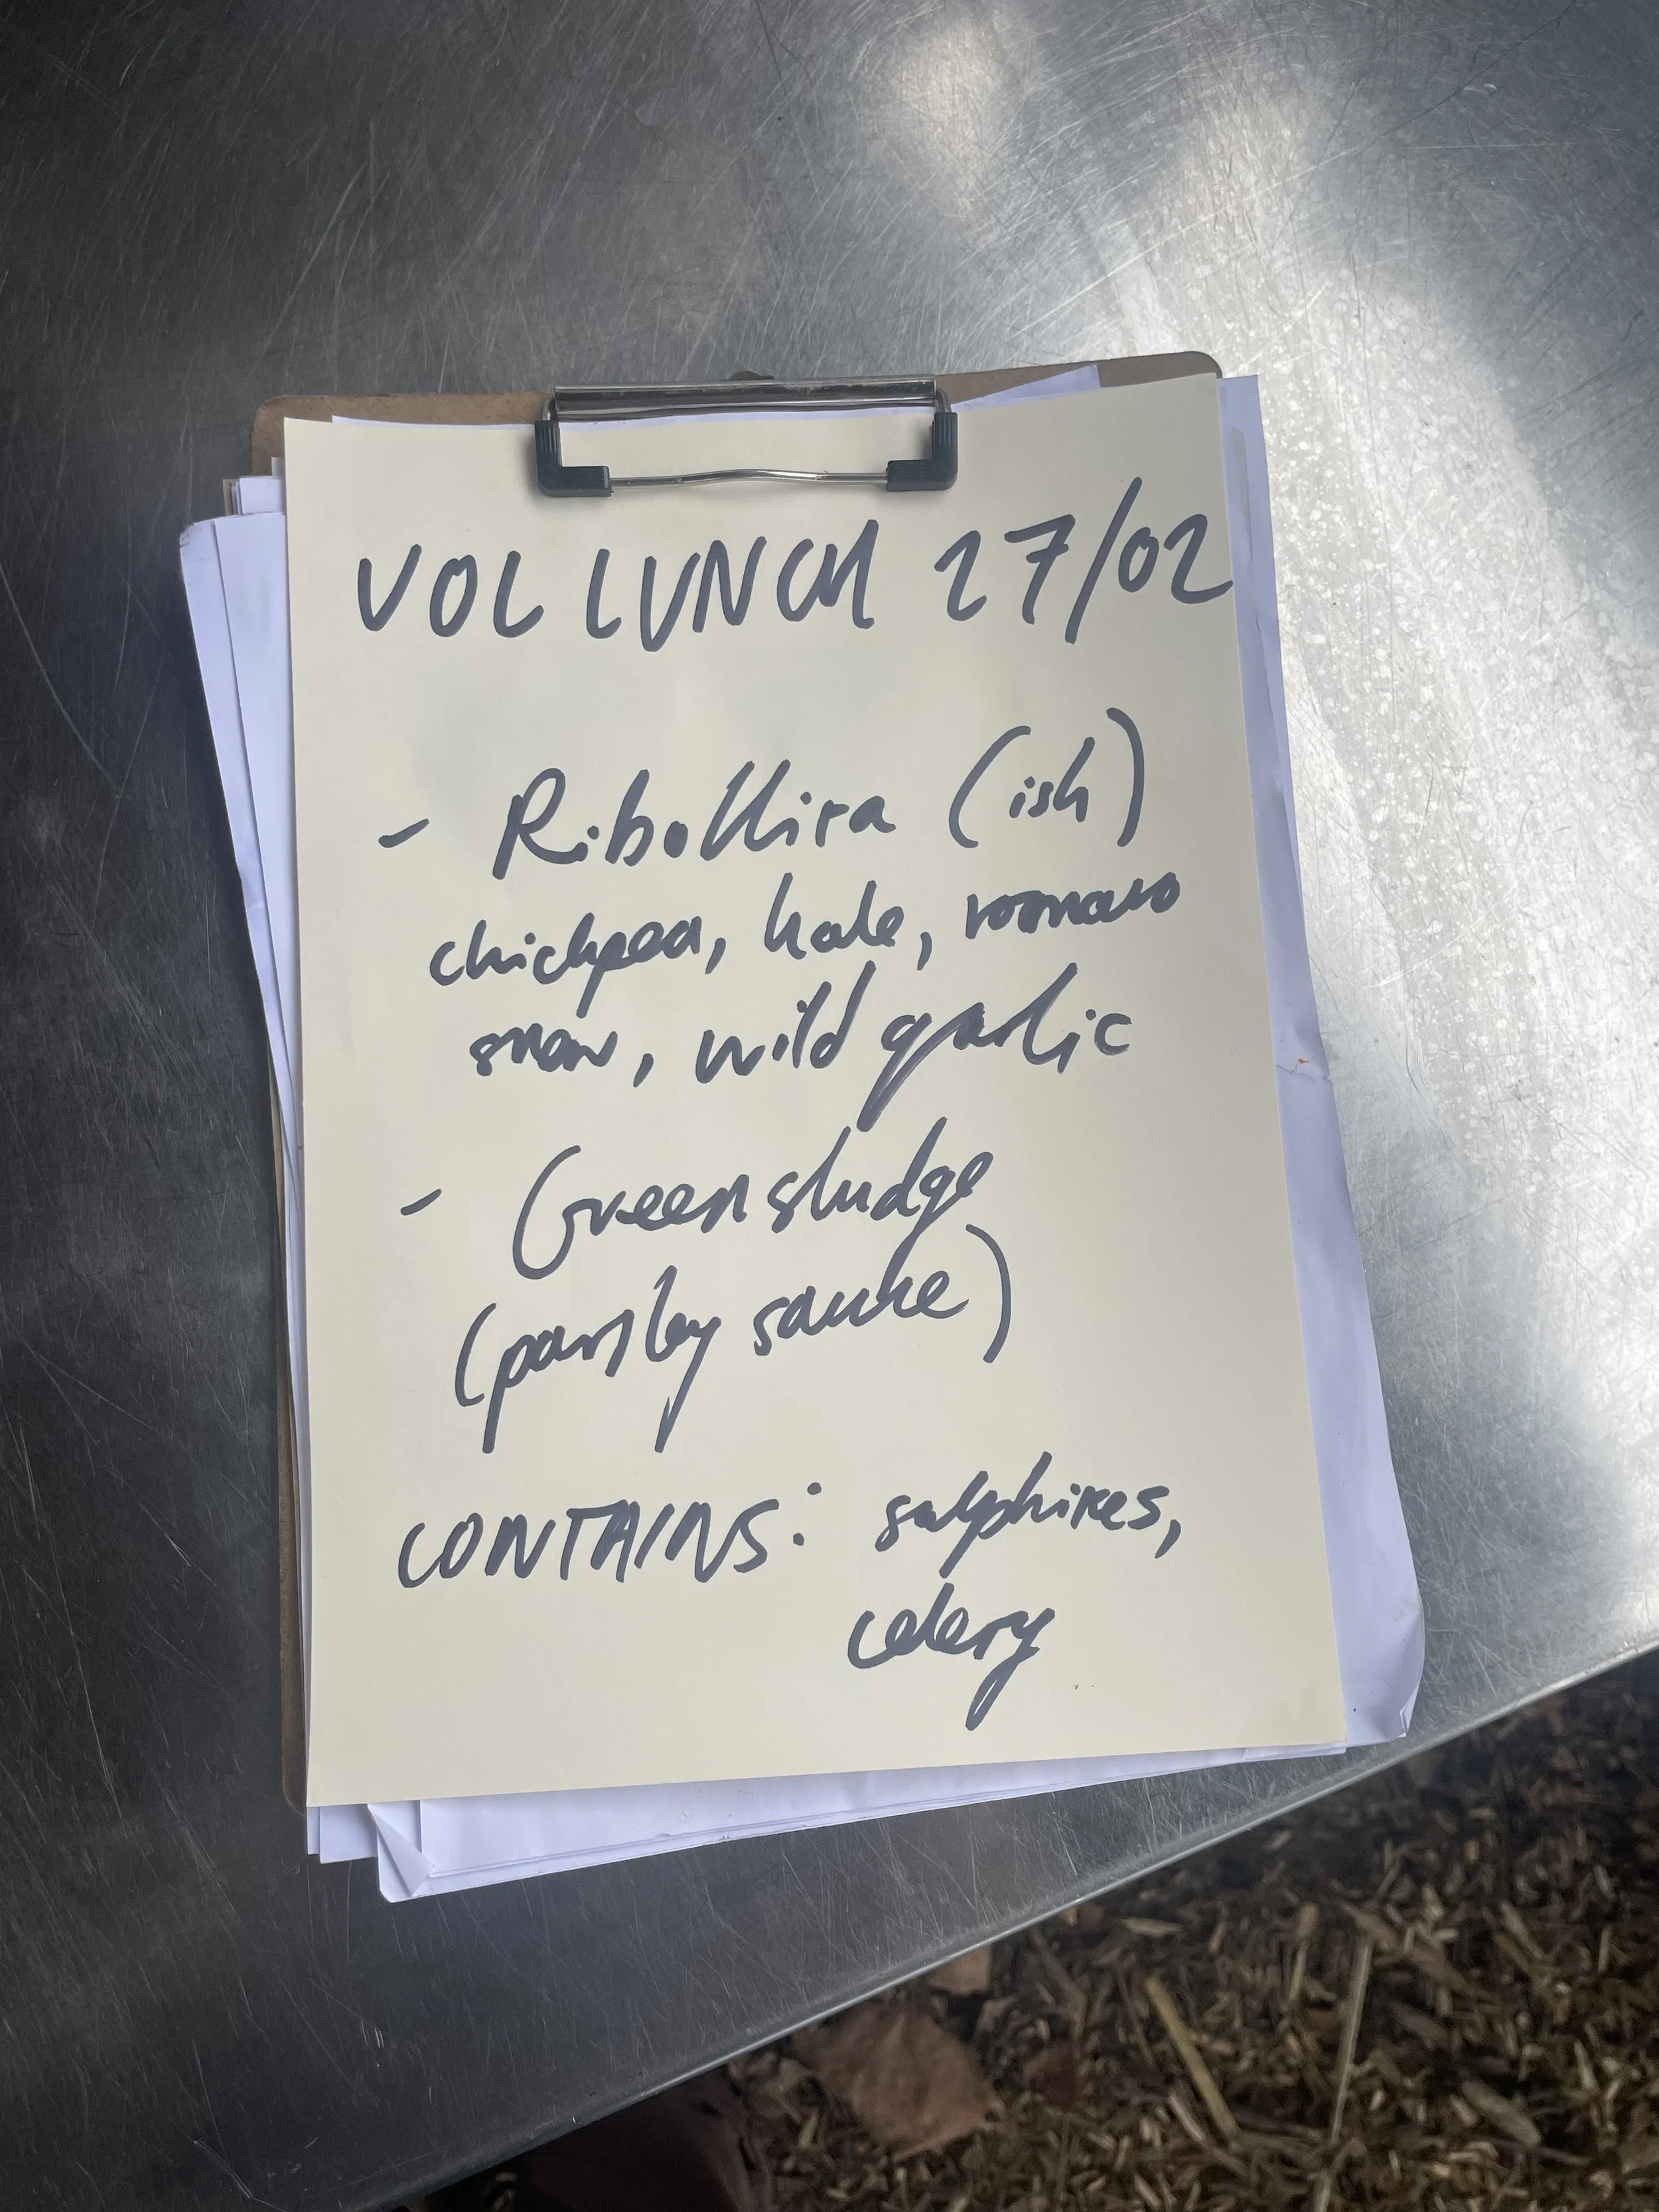 VOL LUNCH 27/02
- Ribollita (ish)
chickpea, kale, tomato
stew, wild garlic
- Green sludge
(parsley sauce)
CONTAINS: sulphites,
celery